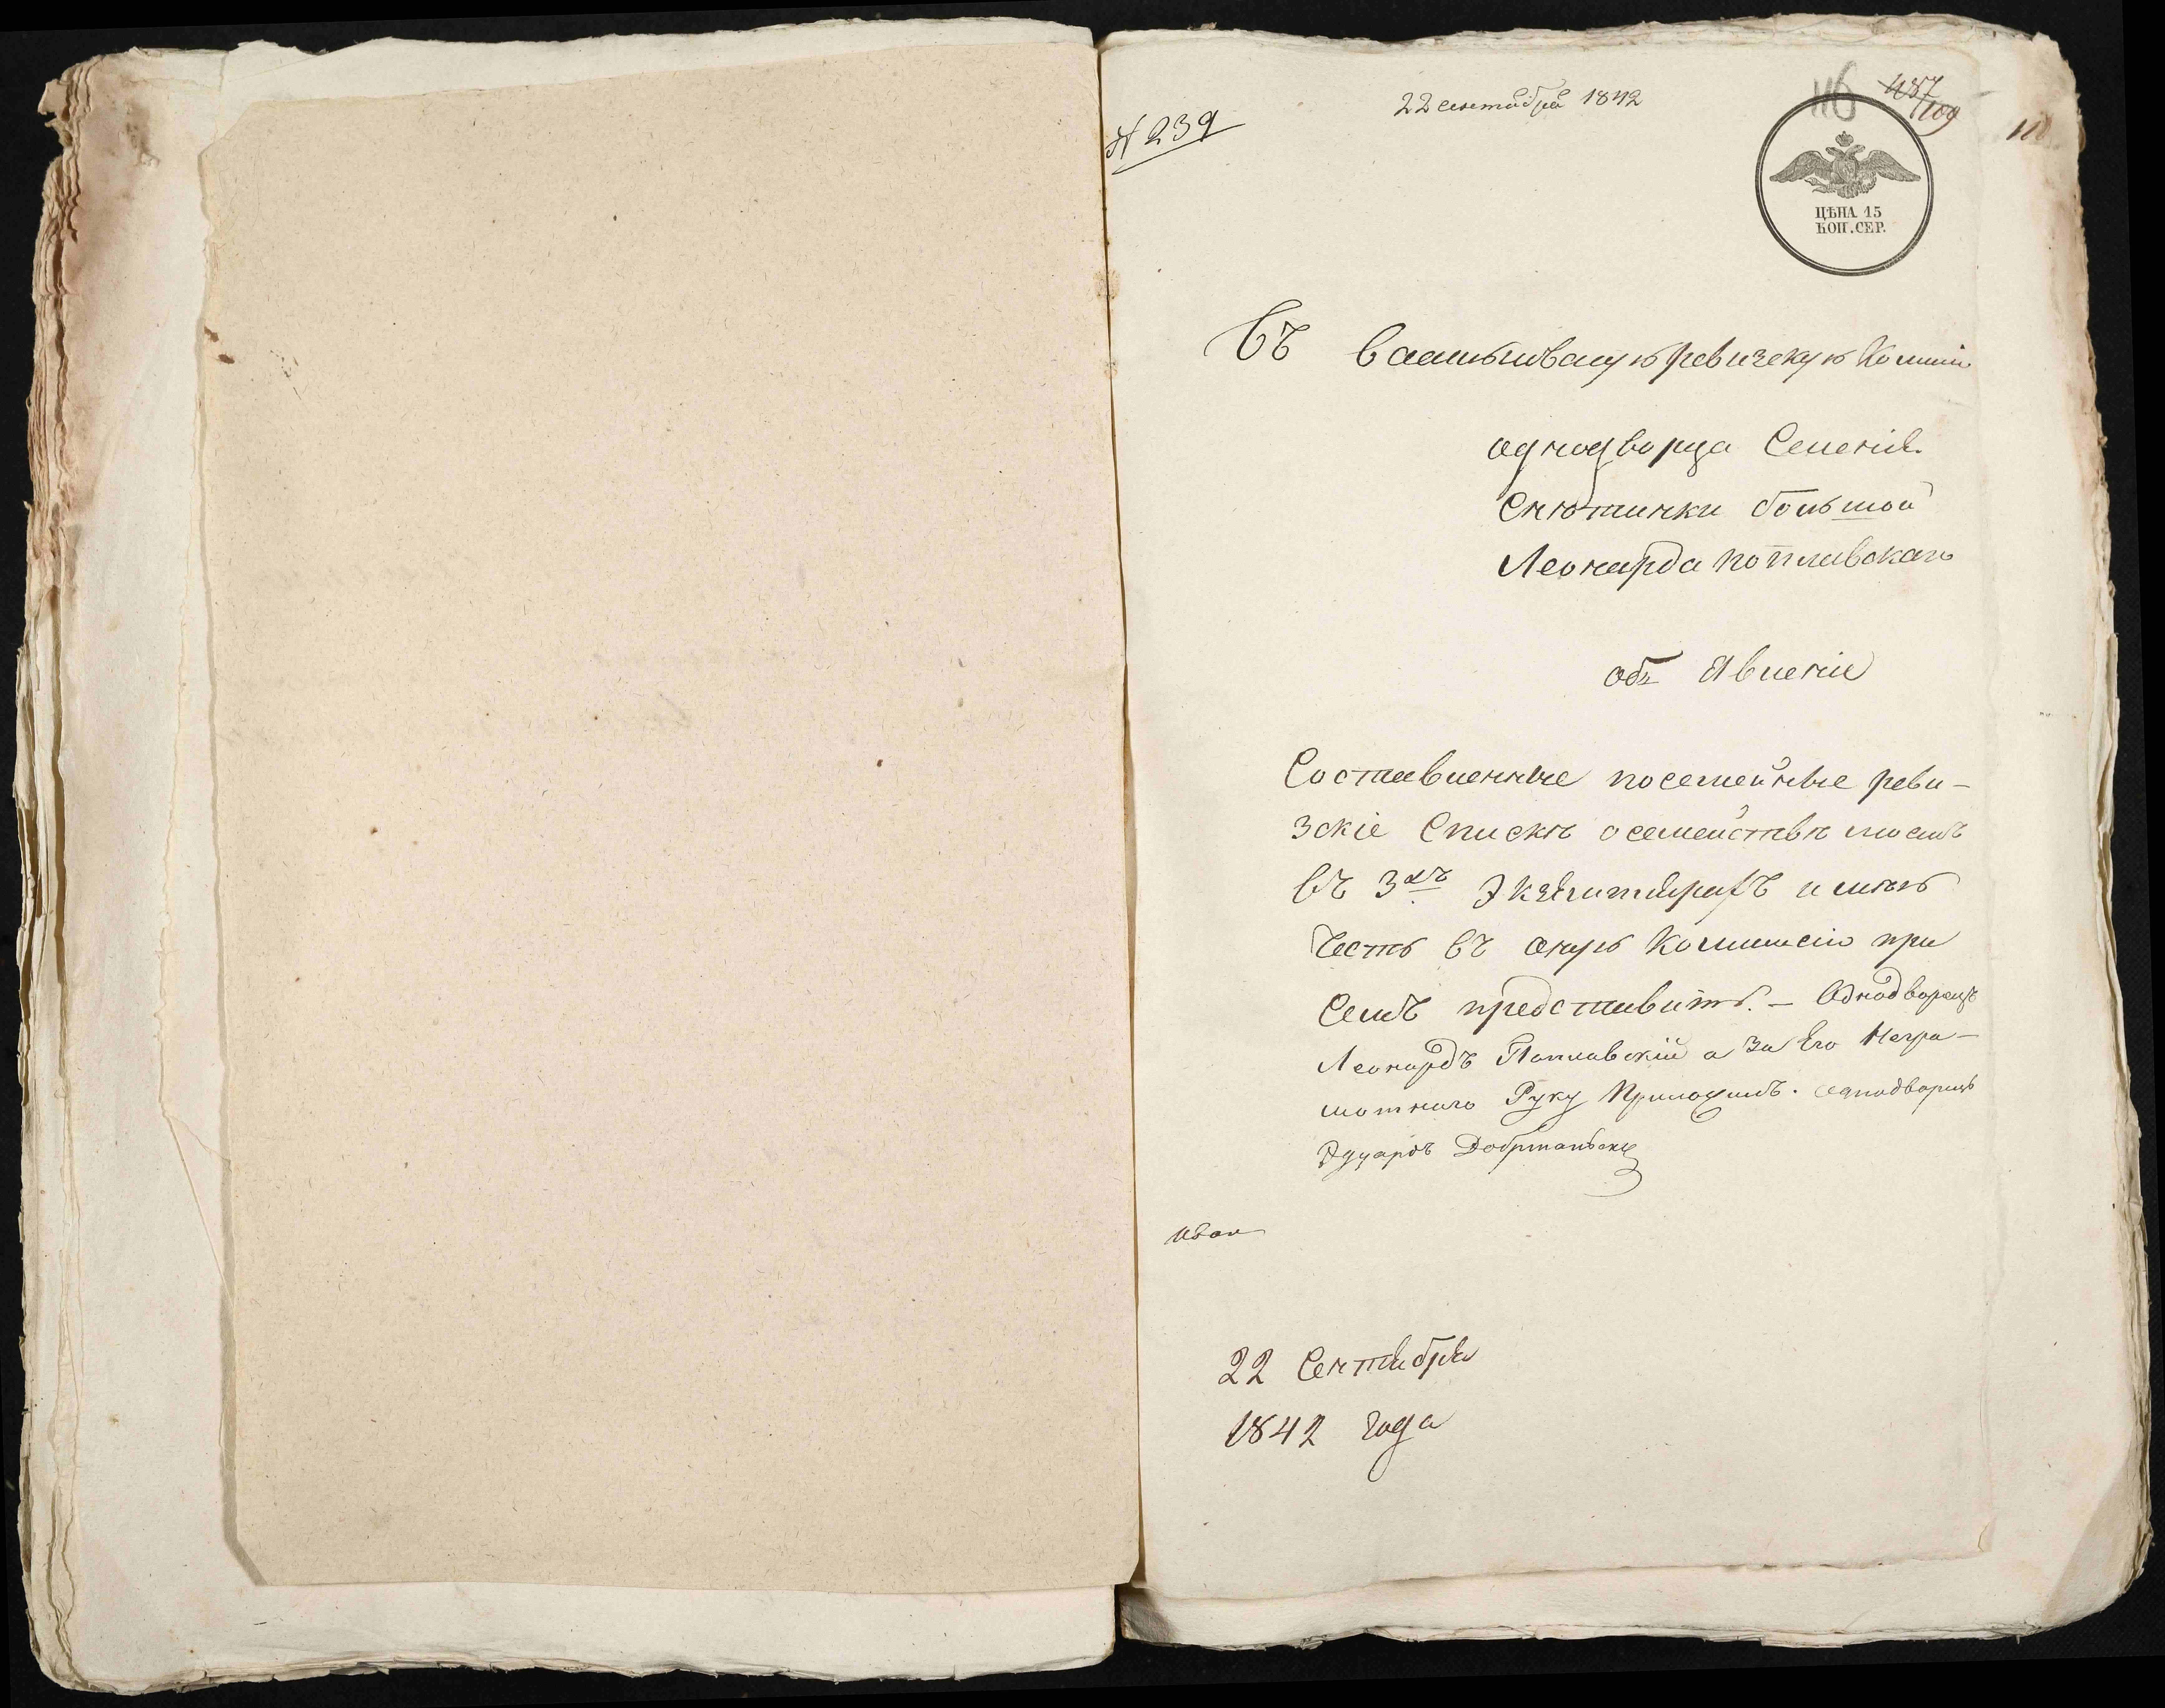 22 сентября 1842
116
457
109
№ 239
ЦѢНА 15
КОП. СЕР.
Въ Васильковскую ревизскую Комиси
однодворца Селенія
Снютинки большой
Леонарда Поплавскаго
объ Явленіе
Составленные посемейные реви-
зскіе Списки о семействѣ моемъ
въ 3хъ Экземплярахъ имѣю
Честь въ оную Коммисію при
Семъ представить. – Однодворецъ
Леонардъ Поплавскій а За Его Негра-
мотнаго Руку Приложилъ. однодворецъ
Эдуардъ
Иван
22 Сентября
1842 года